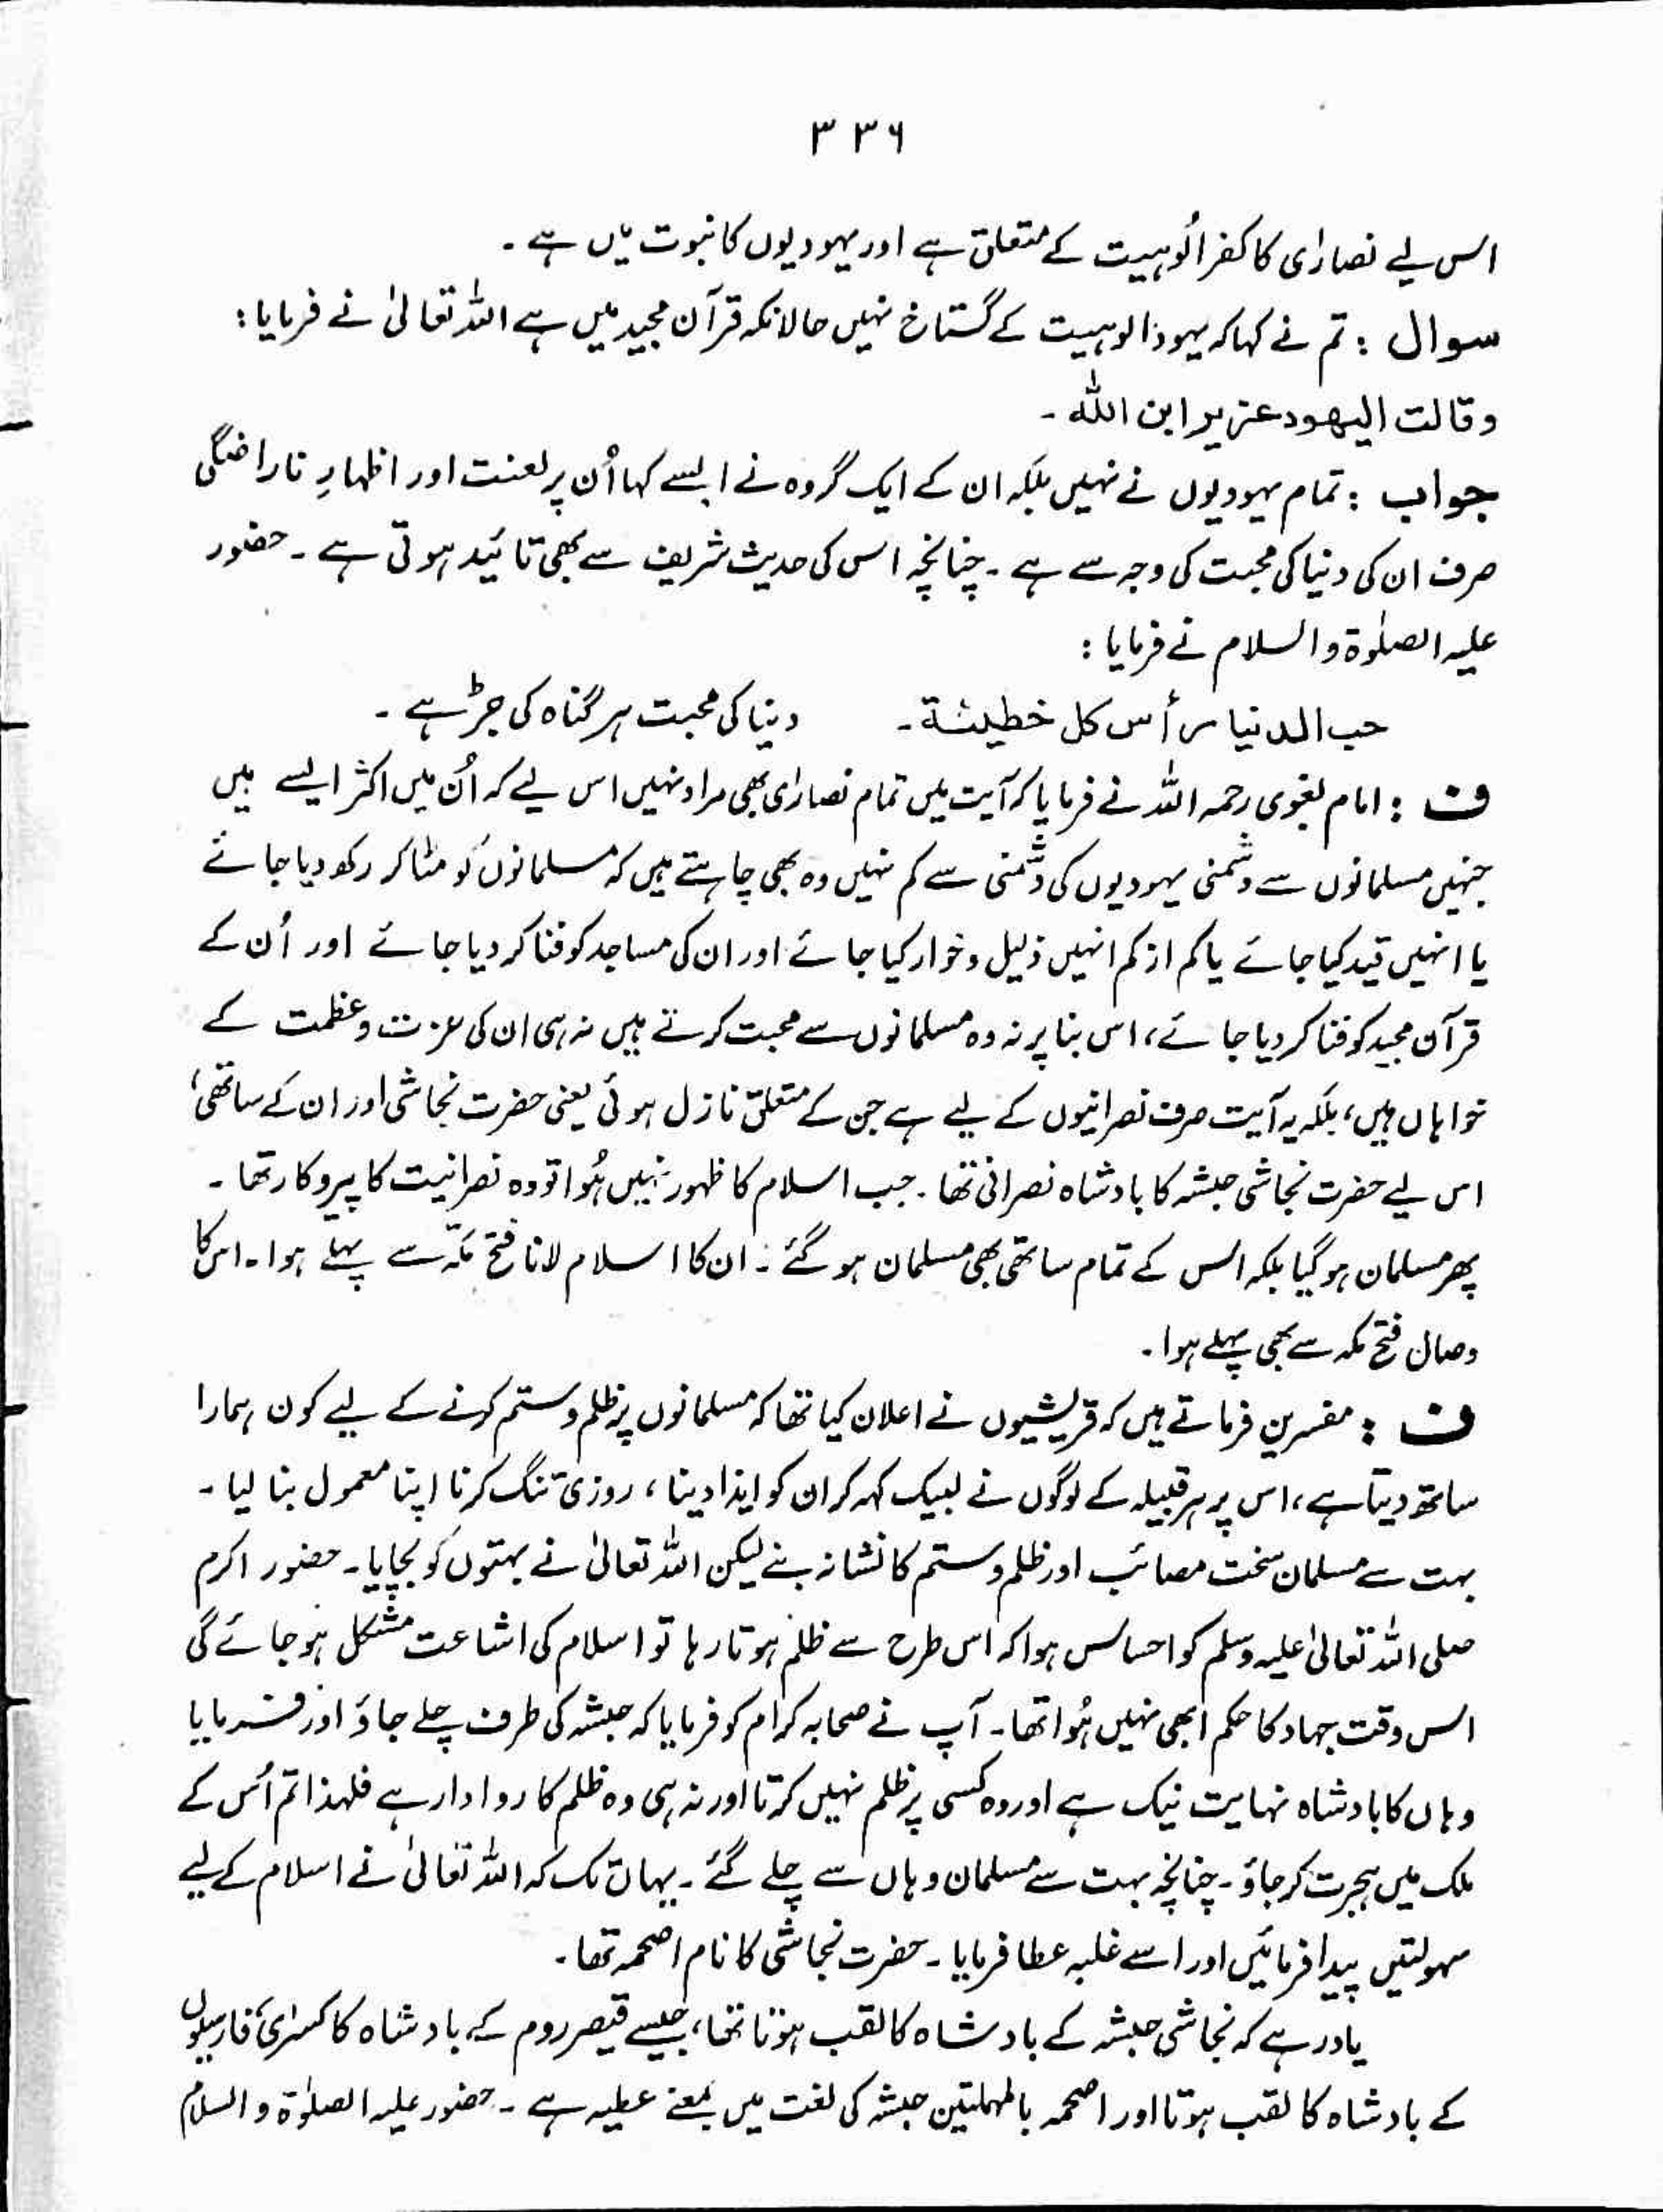 ۳۳۶
اس لیے نصارٰی کا کفر اُلوہیت کے متعلق ہے اور یہودیوں کا نبوت میں ہے ۔
سوال : تم نے کہا کہ یہود الوہیت کے گستاخ نہیں حالانکہ قرآن مجید میں ہے اللہ تعالیٰ نے فرمایا :
وقالت الیھود عزیر ابن اللہ ۔
جواب : تمام یہودیوں نے نہیں بلکہ ان کے ایک گروہ نے ایسے کہا اُن پر لعنت اور اظہارِ ناراضگی
صرف ان کی دنیا کی محبت کی وجہ سے ہے ۔ چنانچہ اس کی حدیث شریف سے بھی تائید ہوتی ہے ۔ حضور
علیہ الصلوٰۃ والسلام نے فرمایا :
حب الدنیا رأس کل خطیئة ۔ دنیا کی محبت ہر گناہ کی جڑ ہے ۔
ف : امام بغوی رحمہ اللہ نے فرمایا کہ آیت میں تمام نصارٰی بھی مراد نہیں اس لیے کہ اُن میں اکثر ایسے ہیں
جنہیں مسلمانوں سے دشمنی یہودیوں کی دشمنی سے کم نہیں وہ بھی چاہتے ہیں کہ مسلمانوں کو مٹا کر رکھ دیا جائے
یا انہیں قید کیا جائے یا کم از کم انہیں ذلیل و خوار کیا جائے اور ان کی مساجد کو فنا کر دیا جائے اور اُن کے
قرآن مجید کو فنا کر دیا جائے ، اس بنا پر نہ وہ مسلمانوں سے محبت کرتے ہیں نہ ہی ان کی عزت و عظمت کے
خواہاں ہیں ، بلکہ یہ آیت صرف نصرانیوں کے لیے ہے جن کے متعلق نازل ہوئی یعنی حضرت نجاشی اور ان کے ساتھی ،
اس لیے حضرت نجاشی حبشہ کا بادشاہ نصرانی تھا ۔ جب اسلام کا ظہور نہیں ہُوا تو وہ نصرانیت کا پیروکار تھا ۔
پھر مسلمان ہو گیا بلکہ اس کے تمام ساتھی بھی مسلمان ہو گئے ۔ ان کا اسلام لانا فتح مکّہ سے پہلے ہوا ۔ اس کا
وصال فتح مکہ سے بھی پہلے ہوا ۔
ف : مفسرین فرماتے ہیں کہ قریشیوں نے اعلان کیا تھا کہ مسلمانوں پر ظلم و ستم کرنے کے لیے کون ہمارا
ساتھ دیتا ہے ، اس پر ہر قبیلہ کے لوگوں نے لبیک کہہ کر ان کو ایذا دینا ، روزی تنگ کرنا اپنا معمول بنا لیا ۔
بہت سے مسلمان سخت مصائب اور ظلم و ستم کا نشانہ بنے لیکن اللہ تعالیٰ نے بہتوں کو بچایا ۔ حضور اکرم
صلی اللہ تعالیٰ علیہ وسلم کو احساس ہوا کہ اس طرح سے ظلم ہوتا رہا تو اسلام کی اشاعت مشکل ہو جائے گی
اس وقت جہاد کا حکم ابھی نہیں ہُوا تھا ۔ آپ نے صحابہ کرام کو فرمایا کہ حبشہ کی طرف چلے جاؤ اور فرمایا
وہاں کا بادشاہ نہایت نیک ہے اور وہ کسی پر ظلم نہیں کرتا اور نہ ہی وہ ظلم کا روادار ہے فلہذا تم اُس کے
ملک میں ہجرت کر جاؤ ۔ چنانچہ بہت سے مسلمان وہاں سے چلے گئے ۔ یہاں تک کہ اللہ تعالیٰ نے اسلام کے لیے
سہولتیں پیدا فرمائیں اور اسے غلبہ عطا فرمایا ۔ حضرت نجاشی کا نام اصحمہ تھا ۔
یاد رہے کہ نجاشی حبشہ کے بادشاہ کا لقب ہوتا تھا ، جیسے قیصر روم کے بادشاہ کا کسرٰی فارسیوں
کے بادشاہ کا لقب ہوتا اور اصحمہ بالمہملتین حبشہ کی لغت میں بمعنے عطیہ ہے ۔ حضور علیہ الصلوٰۃ والسلام